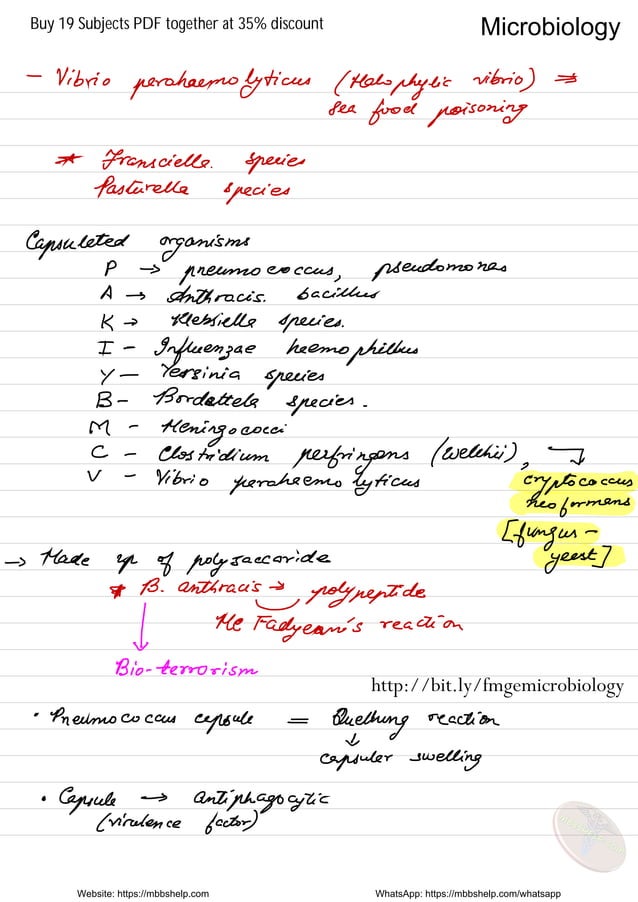 Buy 19 Subjects PDF together at 35% discount
Microbiology
- Vibrio perahaemolyticus (Halophylic vibrio) ⇒
Sea food poisoning
* Franscielle. species
Pasturella species
Capsuleted organisms
P → pneumococcus, pseudomones
A → Anthracis. bacillus
K → Klebsielle species.
I - Influenzae haemophillus
Y - Yersinia species
B - Bordattela species.
M - Meningococci
C - Clostridium perfringens (welchii),
V - Vibrio perahaemolyticus
cryptococcus
neoformens
[fungus -
yeest]
→ Made up of polysaccaride
* B. anthracis → polypeptide
Mc Fadyean's reaction
Bio-terrorism
http://bit.ly/fmgemicrobiology
• Pneumococcus cepsule = Quellung reaction
↓
capsuler swelling
• Capsule → antiphagocytic
(virulence factor)
Website: https://mbbshelp.com
WhatsApp: https://mbbshelp.com/whatsapp